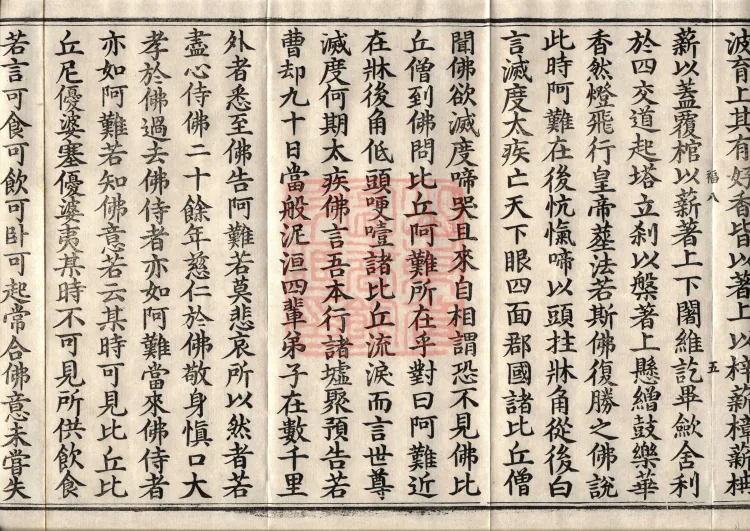 波育上其有好香皆以著上以梓薪樟薪栴
福八 五
薪以蓋覆棺以薪著上下闍維訖畢斂舍利
於四交道起塔立刹以槃著上懸繒鼓樂華
香然燈飛行皇帝塟法若斯佛復勝之佛說
此時阿難在後忼愾啼以頭拄牀角從後白
言滅度太疾亡天下眼四面郡國諸比丘僧
聞佛欲滅度啼哭且來自相謂恐不見佛比
丘僧到佛問比丘阿難所在乎對曰阿難近
在牀後角低頭哽噎諸比丘流淚而言世尊
滅度何期太疾佛言吾本行諸墟聚預告若
曹却九十日當般泥洹四輩弟子在數千里
外者悉至佛告阿難若莫悲哀所以然者若
盡心侍佛二十餘年慈仁於佛敬身慎口大
孝於佛過去佛侍者亦如阿難當來佛侍者
亦如阿難若知佛意若云某時可見比丘比
丘尼優婆塞優婆夷某時不可見所供飲食
若言可食可飲可卧可起常合佛意未嘗失